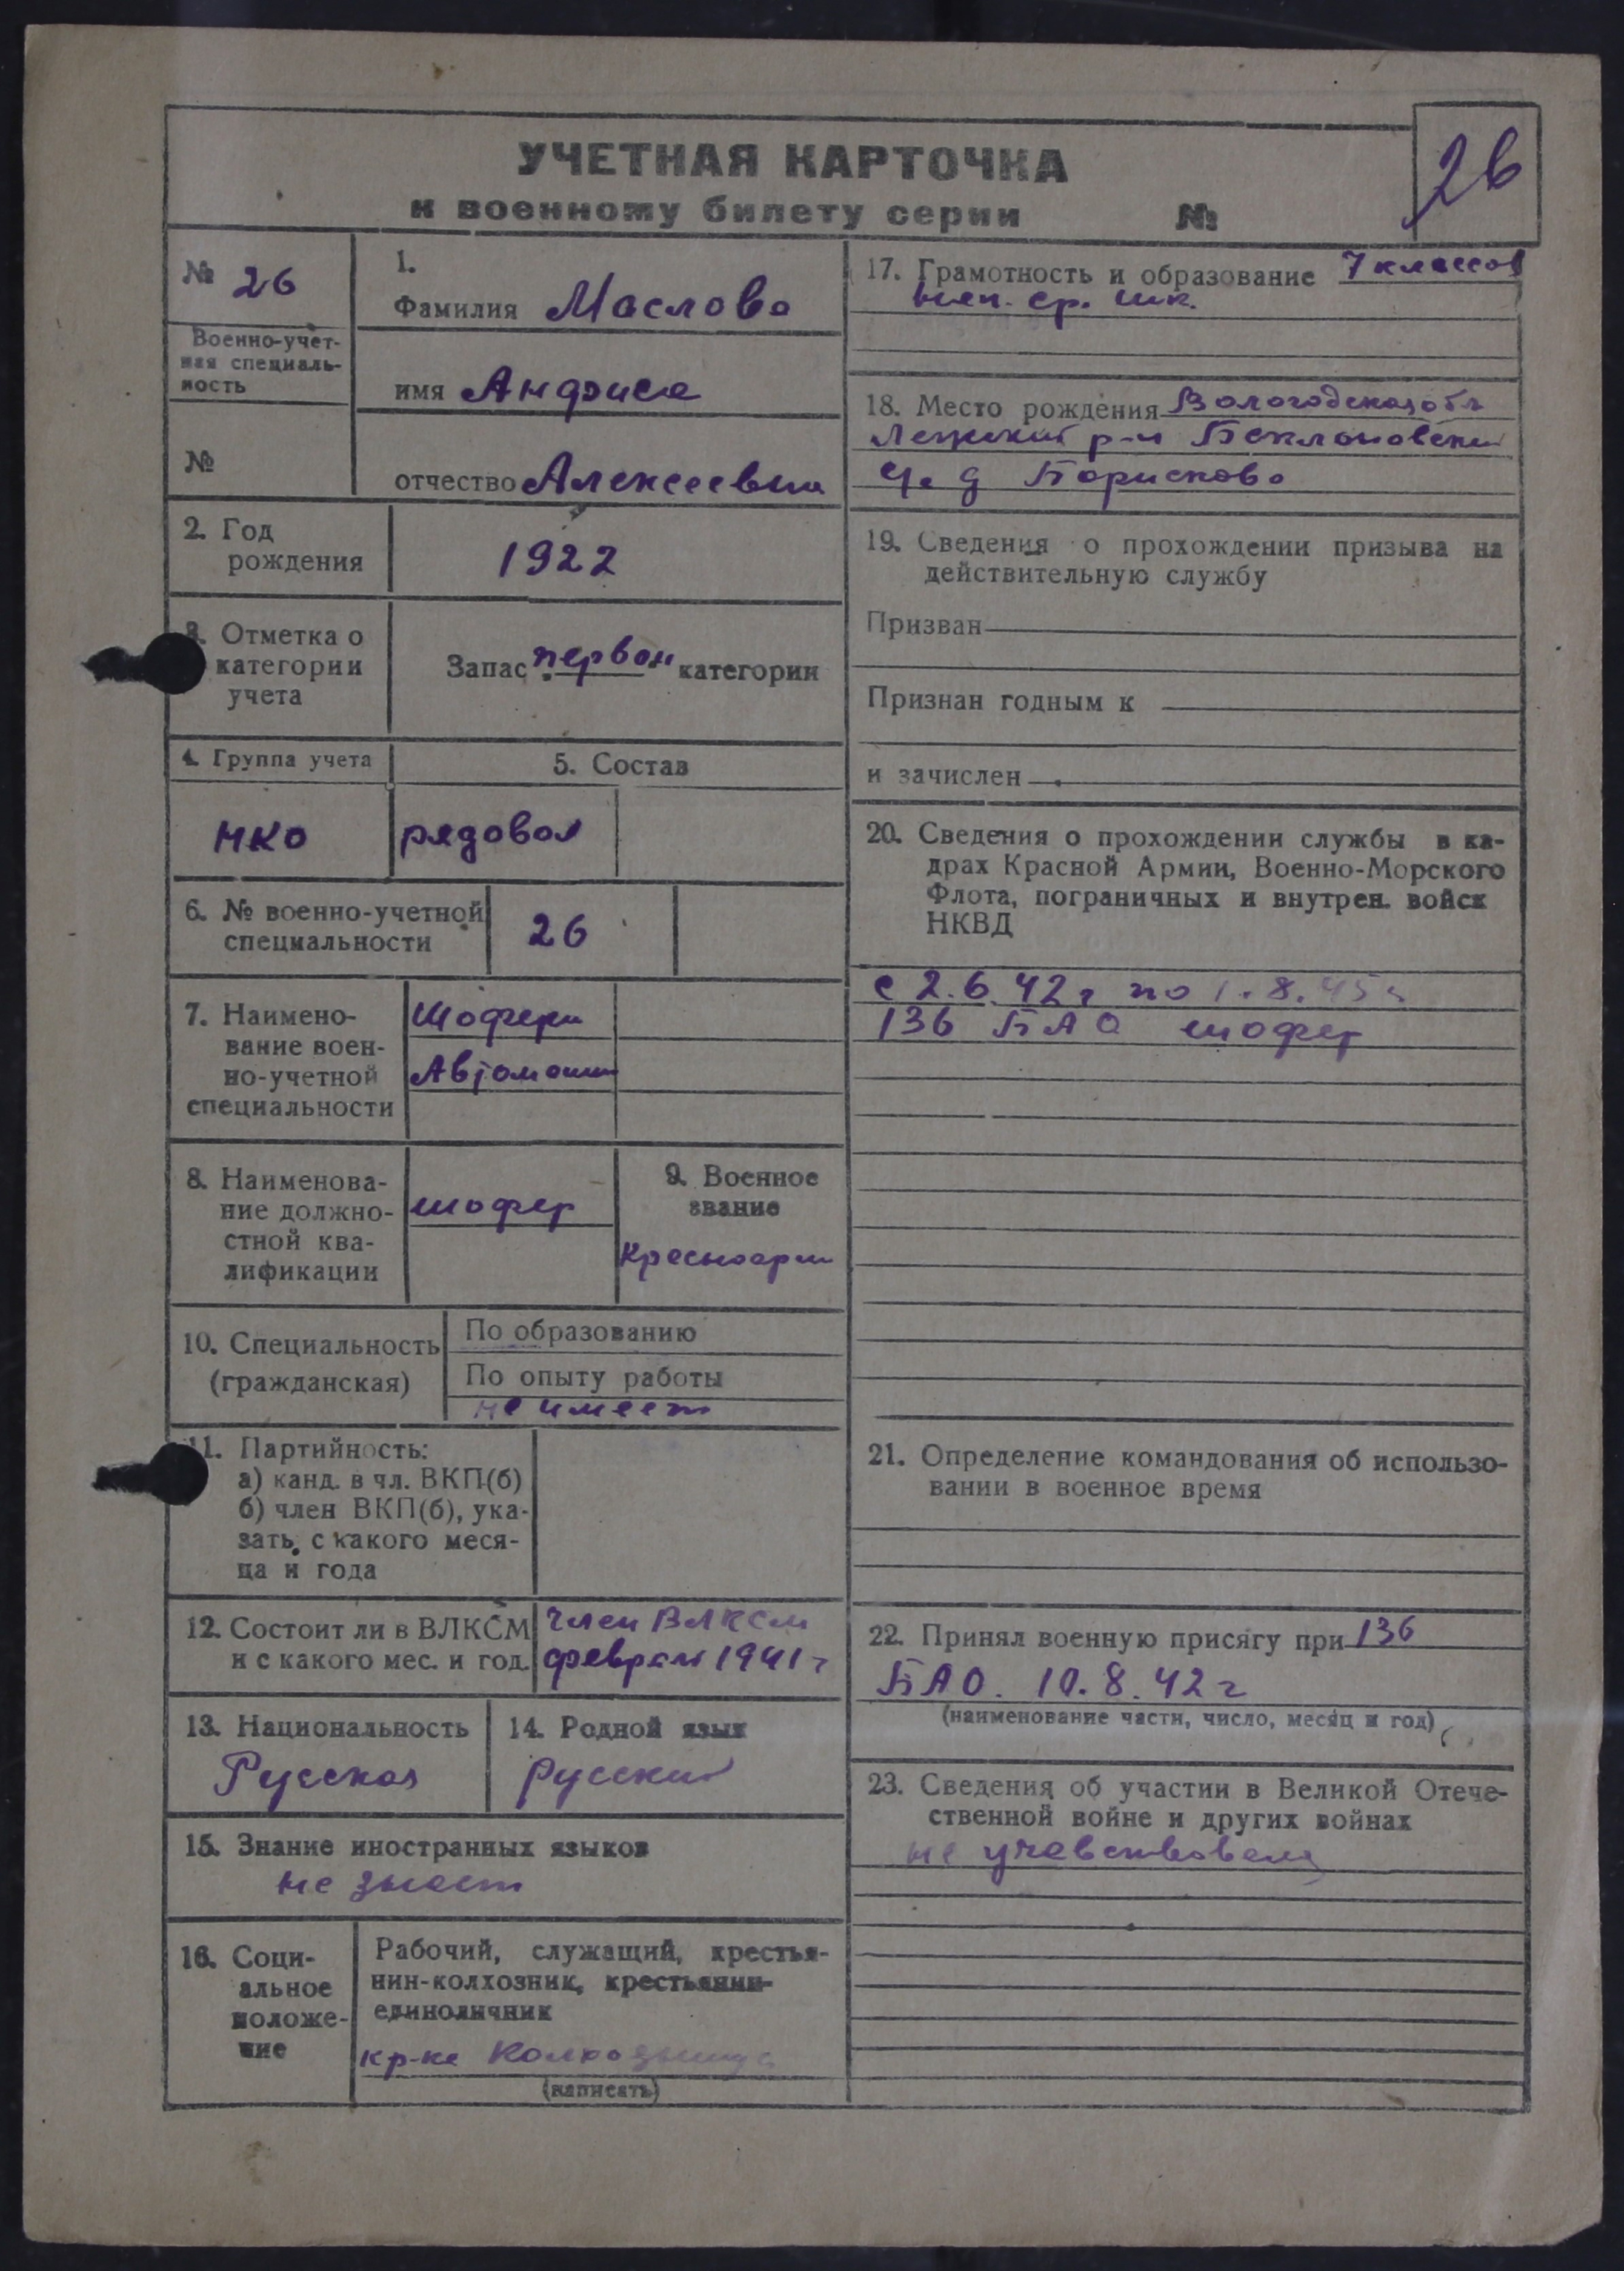 УЧЕТНАЯ КАРТОЧКА
к военному билету серии №
26
№ 26
Военно-учет-
ная специаль-
ность
№
1.
Фамилия Маслова
имя Анфиса
отчество Алексеевна
2. Год
рождения
1922
3. Отметка о
категории
учета
Запас первой категории
4. Группа учета
5. Состав
НКО
рядовой
6. № военно-учетной
специальности
26
7. Наимено-
вание воен-
но-учетной
специальности
Шофера
Автомашин
8. Наименова-
ние должно-
стной ква-
лификации
шофер
9. Военное
звание
Красноарм
10. Специальность
(гражданская)
По образованию
По опыту работы
не имеет
11. Партийность:
а) канд. в чл. ВКП(б)
б) член ВКП(б), ука-
зать, с какого меся-
ца и года
12. Состоит ли в ВЛКСМ
и с какого мес. и год.
член ВЛКСМ
февраль 1941 г
13. Национальность
Русская
14. Родной язык
русский
15. Знание иностранных языков
не знает
16. Соци-
альное
положе-
ние
Рабочий, служащий, крестья-
нин-колхозник, крестьянин-
единоличник
кр-ка Колхозница
(написать)
17. Грамотность и образование 7 классов
неп. ср. шк.
18. Место рождения Вологодская обл
Лежский р-н
д Борисково
19. Сведения о прохождении призыва на
действительную службу
Призван
Признан годным к
и зачислен
20. Сведения о прохождении службы в ка-
драх Красной Армии, Военно-Морского
Флота, пограничных и внутрен. войск
НКВД
с 2.6.42 г по 1.8.45 г
136 БАО шофер
21. Определение командования об использо-
вании в военное время
22. Принял военную присягу при 136
БАО. 10.8.42 г
(наименование части, число, месяц и год)
23. Сведения об участии в Великой Отече-
ственной войне и других войнах
не учавствовала